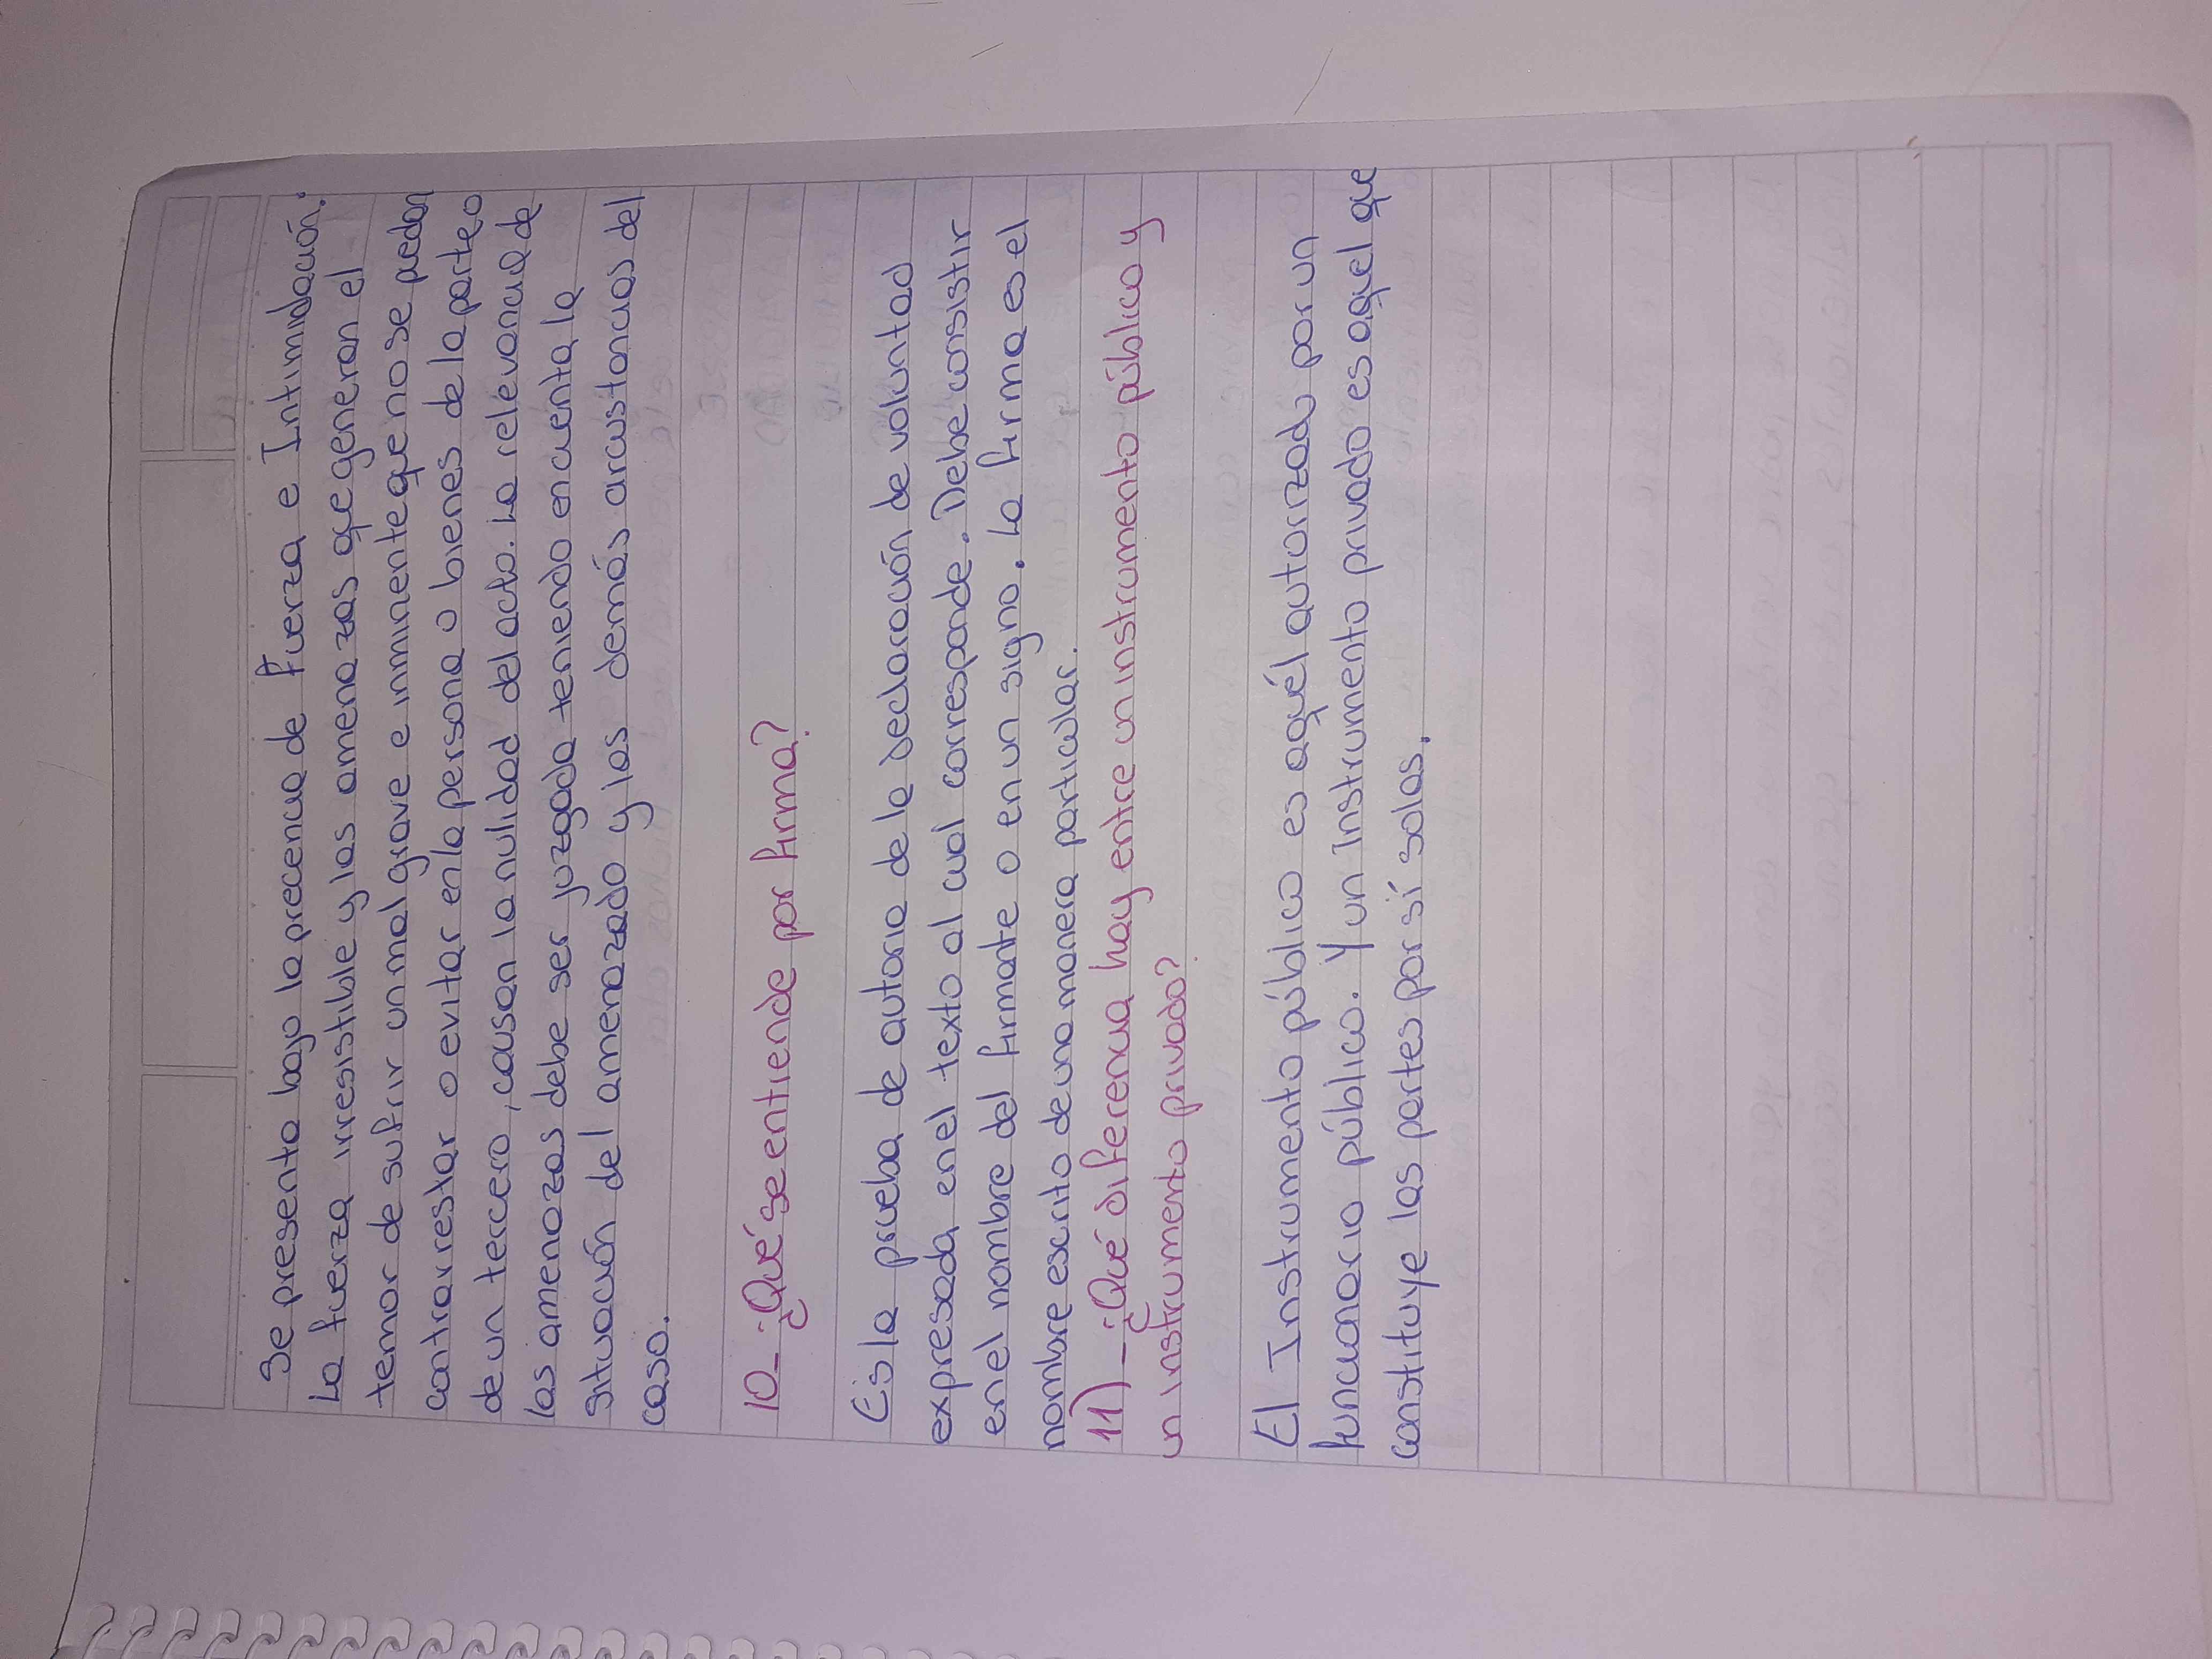 Se presenta bajo la precencia de fuerza e Intimidación:
La fuerza irresistible y las amenazas que generan el
temor de sufrir un mal grave e inminente que no se puedan
contrarrestar o evitar en la persona o bienes de la parte o
de un tercero, causan la nulidad del acto. La relevancia de
las amenazas debe ser juzgada teniendo en cuenta la
situación del amenazado y las demás circustancias del
caso.
10-¿Qué se entiende por firma?
Es la prueba de autoria de la declaración de voluntad
expresada en el texto al cual corresponde. Debe consistir
en el nombre del firmante o en un signo. La firma es el
nombre escrito de una manera particular.
11)-¿Qué diferencia hay entre un instrumento público y
un instrumento privado?
El Instrumento público es aquél autorizado por un
funcionario público. Y un Instrumento privado es aquel que
constituye las partes por sí solas.